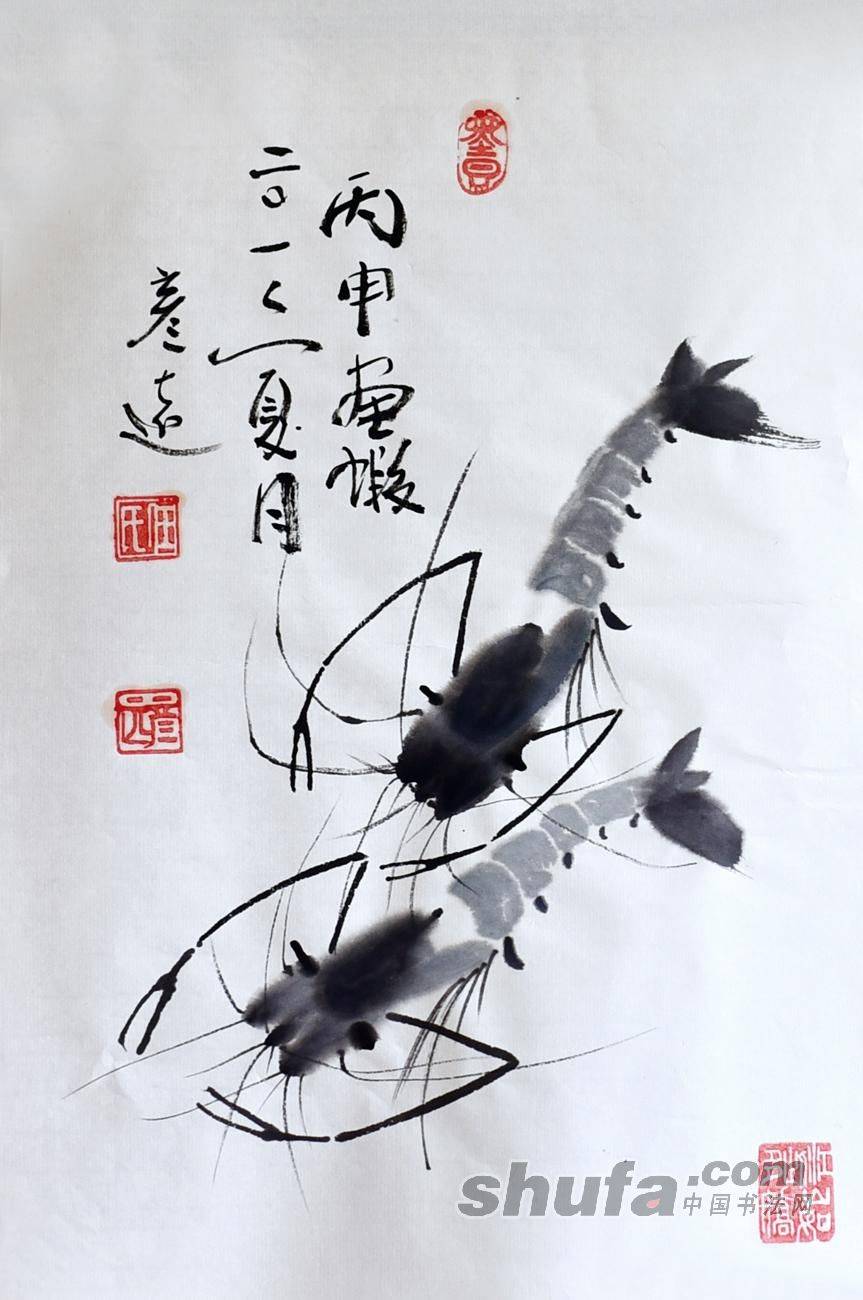 丙申畫蝦
二〇一六夏月
彦遠
shufa.com
中国书法网